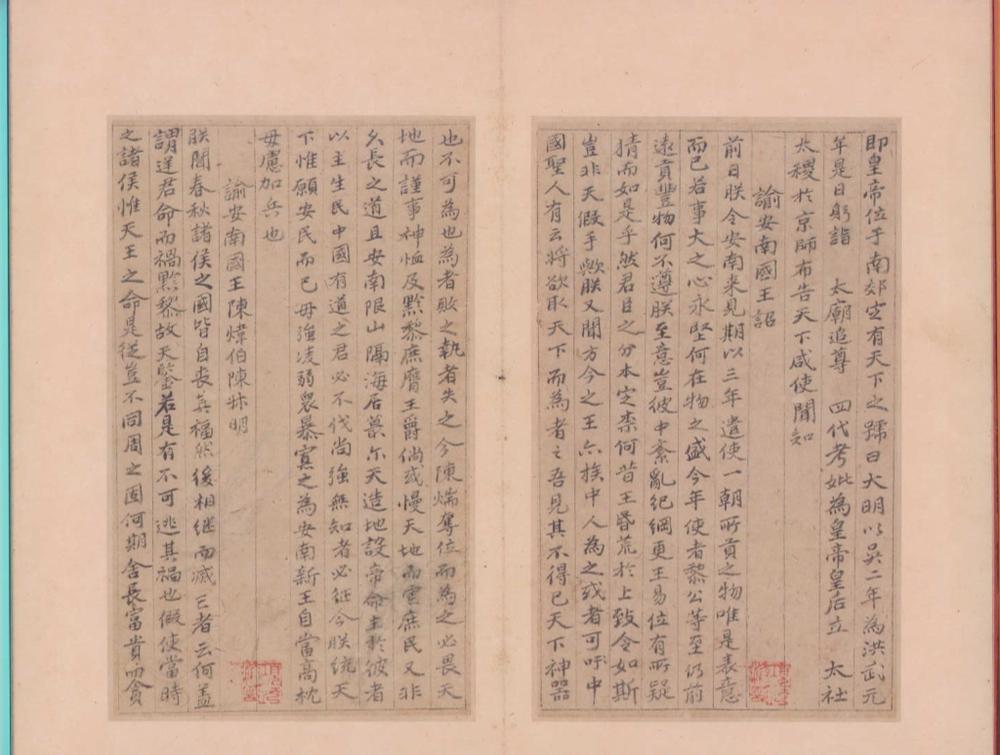 即皇帝位于南郊定有天下之號曰大明以吳二年為洪武元
年是日躬詣　太廟追尊　四代考妣為皇帝皇后立　太社
太稷於京師布告天下咸使聞知
諭安南國王詔
前日朕令安南來見期以三年遣使一朝所貢之物唯是表意
而已若事大之心永堅何在物之盛今年使者黎公等至仍前
遠貢豐物何不遵朕至意豈彼中紊亂紀綱更王易位有所疑
猜而如是乎然君臣之分本定柰何昔王昏荒於上致令如斯
豈非天假手歟朕又聞方今之王亦族中人為之或者可吁中
國聖人有云將欲取天下而為者之吾見其不得已天下神器
也不可為也為者敗之執者失之今陳煓奪位而為之必畏天
地而謹事神恤及黔黎庶膺王爵倘或慢天地而虐庶民又非
久長之道且安南限山隔海居景尓天造地設帝命主於彼者
以主生民中國有道之君必不伐尚強無知者必征今朕統天
下惟願安民而已毋強凌弱衆暴寡之為安南新王自當高枕
毋慮加兵也
諭安南國王陳煒伯陳叔明
朕聞春秋諸侯之國皆自喪其福然後相継而滅亡者云何蓋
謂逆君命而禍黔黎故天鑒若是有不可逃其禍也假使當時
之諸侯惟天王之命是從豈不同周之固何期舍長富貴而貪